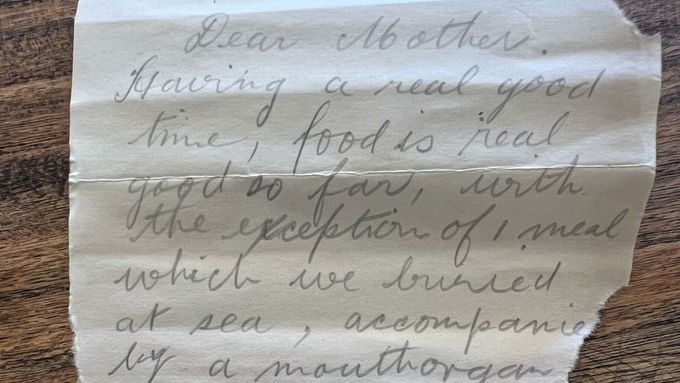 Dear Mother.
Having a real good
time, food is real
good so far, with
the exception of 1 meal
which we buried
at sea, accompanie
by a mouthorgan